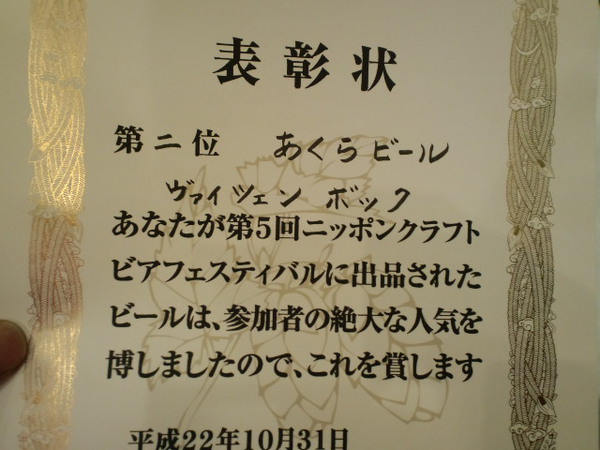 表彰状
第二位 あくらビール
ヴァイツェン ボック
あなたが第5回ニッポンクラフト
ビアフェスティバルに出品された
ビールは、参加者の絶大な人気を
博しましたので、これを賞します
平成22年10月31日